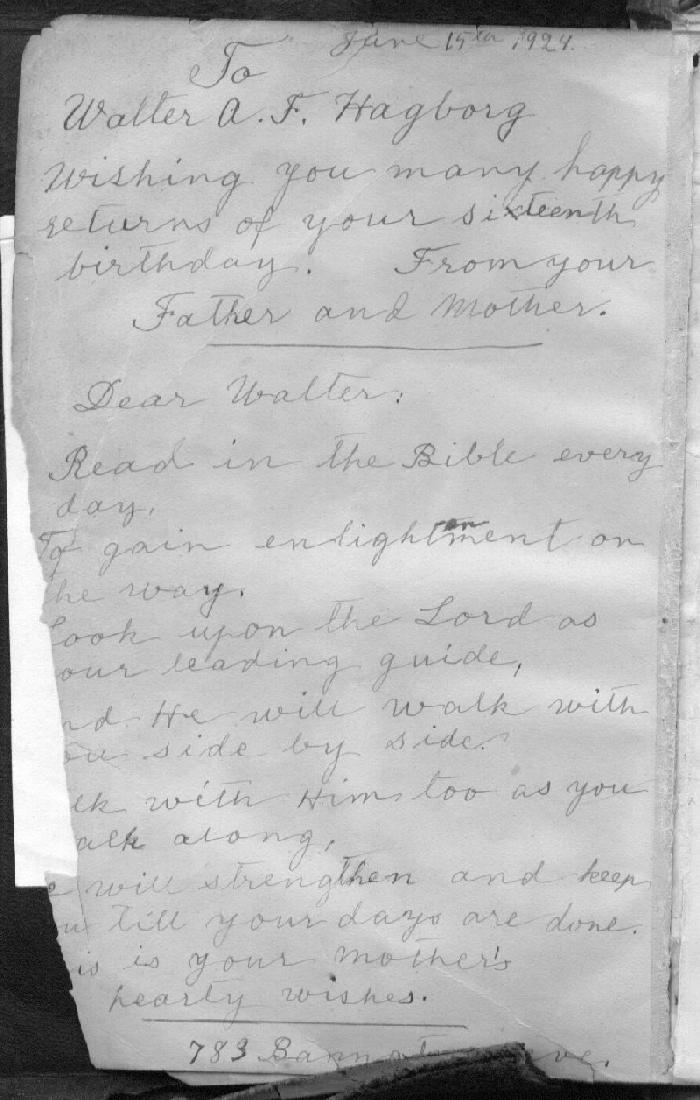 June 15th, 1924.
To
Walter A. F. Hagborg
Wishing you many happy
returns of your sixteenth
birthday. From your
Father and Mother.
Dear Walter:
Read in the Bible every
day,
To gain enlightment on
he way.
Look upon the Lord as
our leading guide,
nd He will walk with
ou side by side.
lk with Him too as you
alk along,
e will strengthen and keep
u till your days are done.
is is your Mother's
hearty wishes.
783 ve.